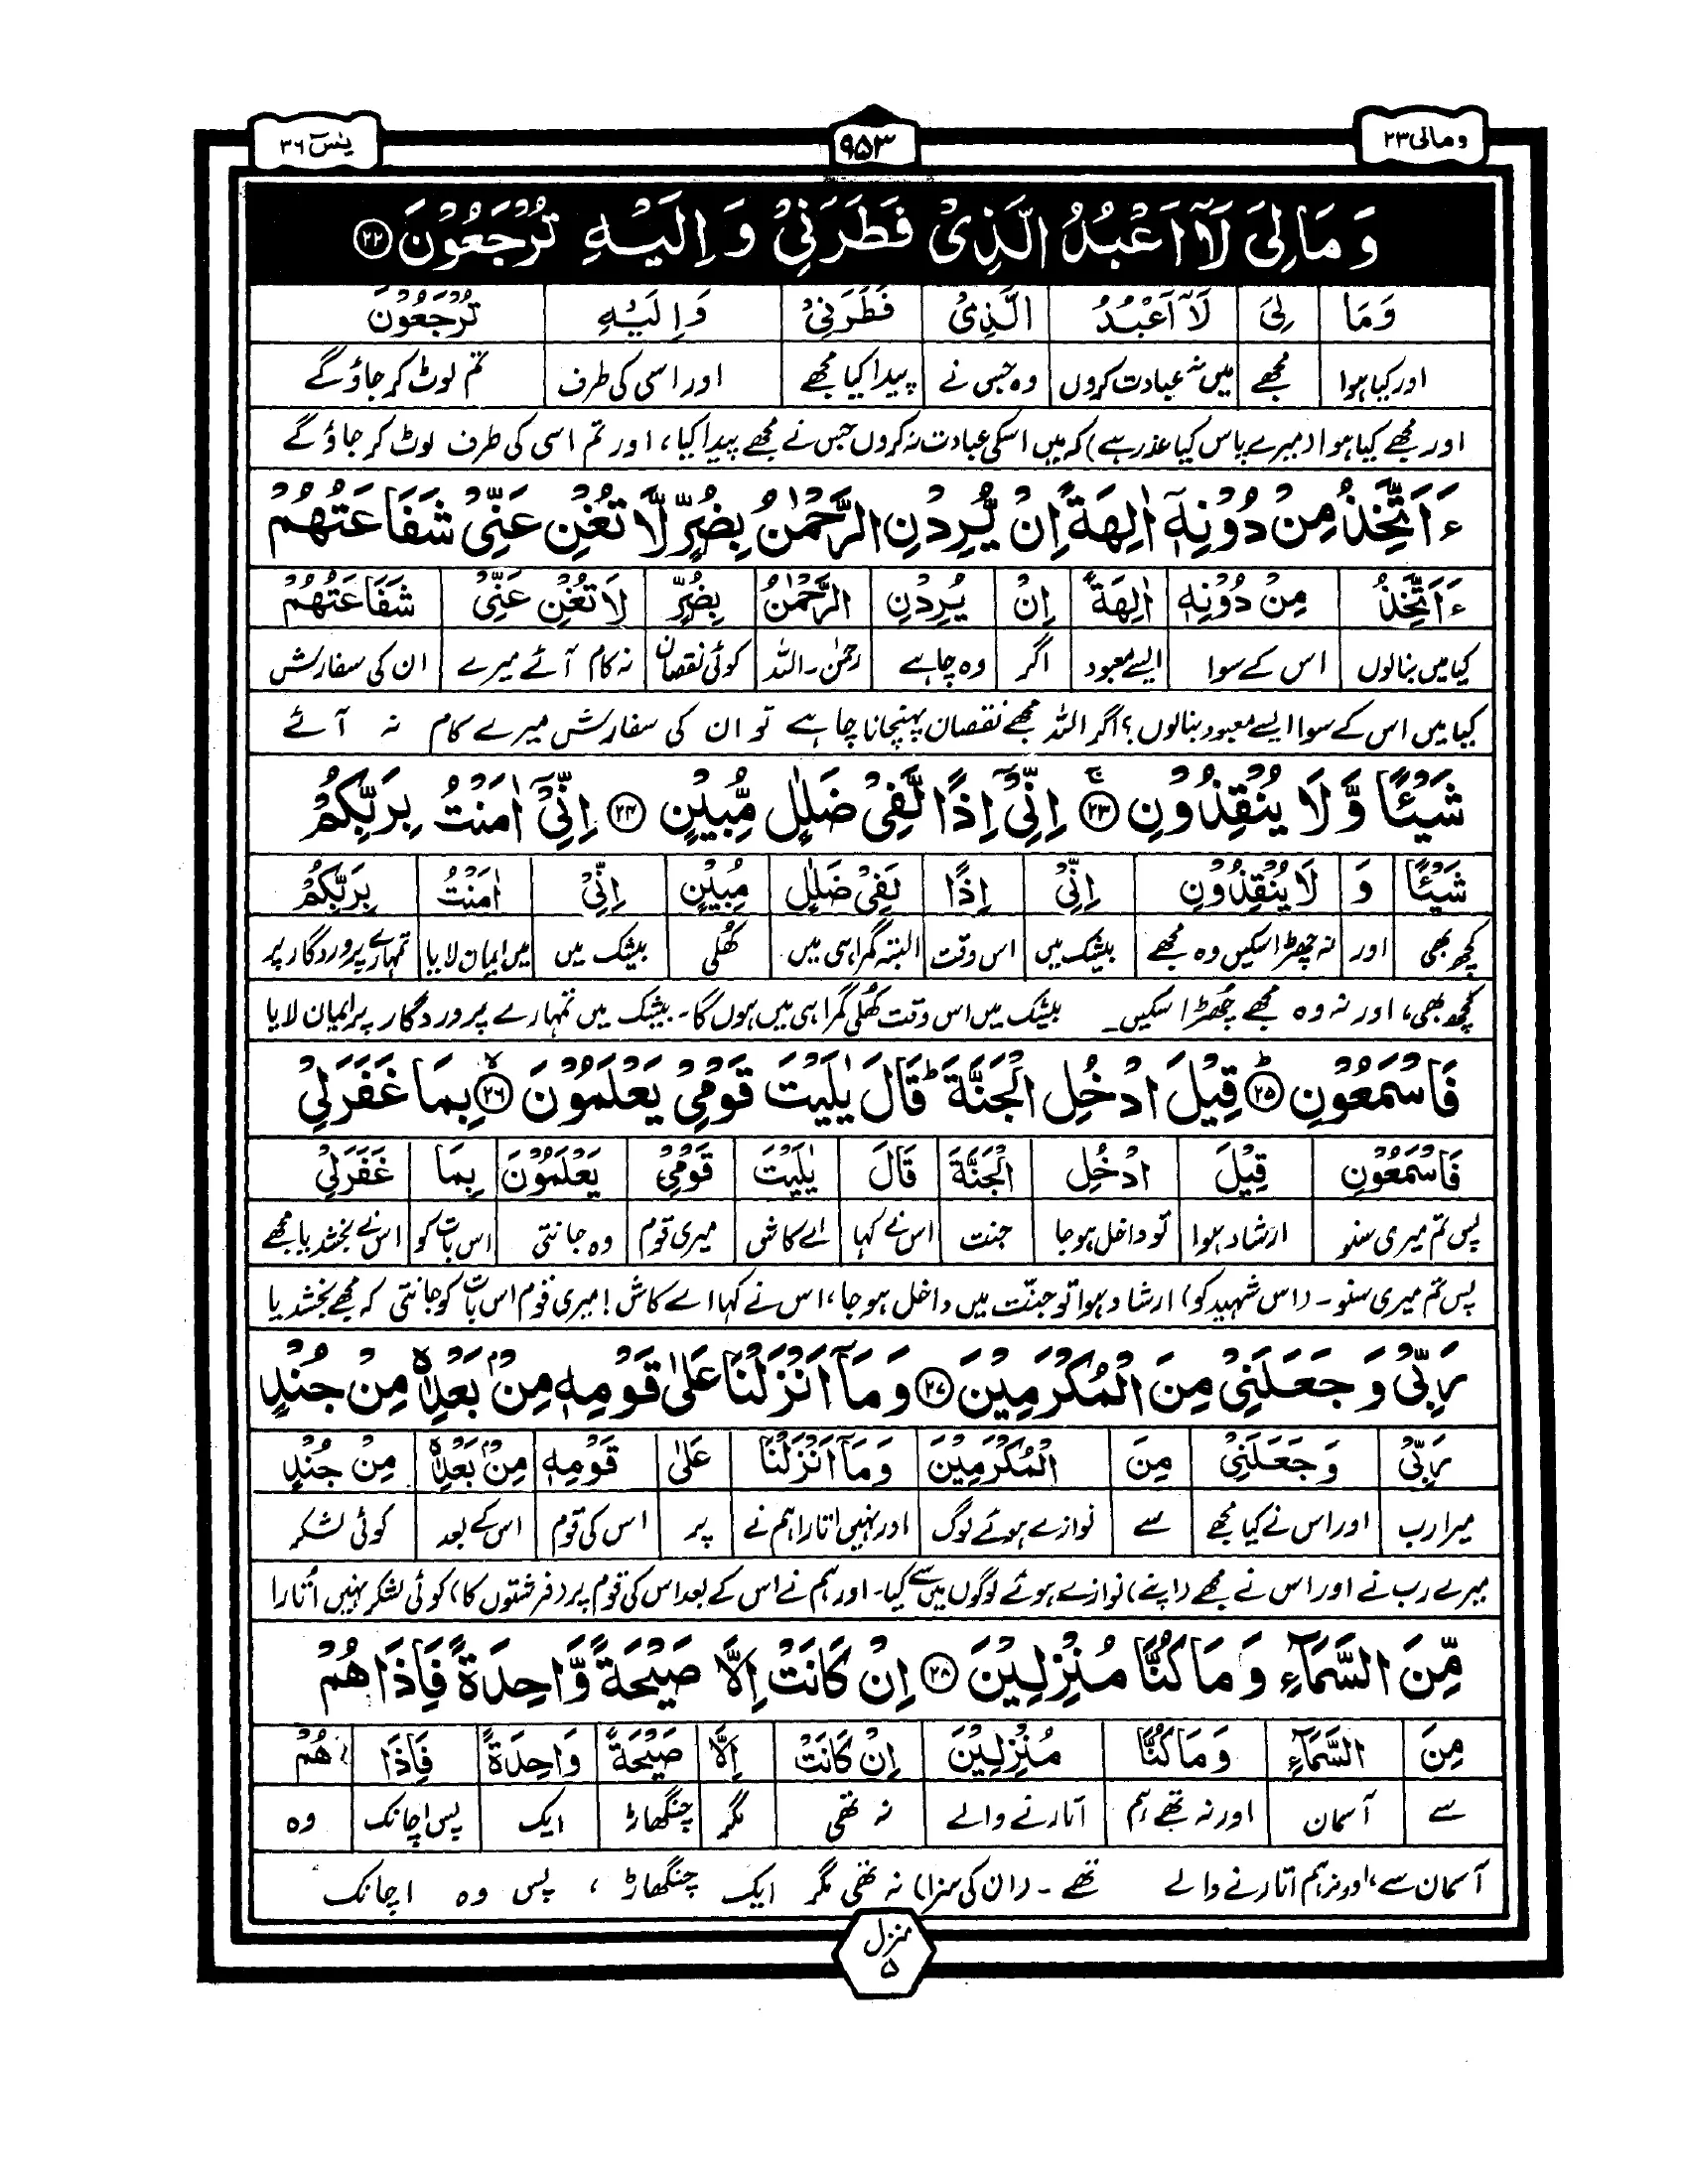 ومالی ۲۳ ۹۵۳ یٰسٓ ۳۶
وَمَا لِیَ لَآ اَعْبُدُ الَّذِیْ فَطَرَنِیْ وَ اِلَیْهِ تُرْجَعُوْنَ ۲۲
وَمَا لِیَ لَآ اَعْبُدُ الَّذِیْ فَطَرَنِیْ وَاِلَیْهِ تُرْجَعُوْنَ
اور کیا ہوا مجھے میں نہ عبادت کروں وہ جس نے پیدا کیا مجھے اور اسی کی طرف تم لوٹ کر جاؤ گے
اور مجھے کیا ہوا (میرے پاس کیا عذر ہے) کہ میں اسکی عبادت نہ کروں جس نے مجھے پیدا کیا، اور تم اسی کی طرف لوٹ کر جاؤ گے
ءَاَتَّخِذُ مِنْ دُوْنِهٖۤ اٰلِهَةً اِنْ یُّرِدْنِ الرَّحْمٰنُ بِضُرٍّ لَّا تُغْنِ عَنِّیْ شَفَاعَتُهُمْ
ءَاَتَّخِذُ مِنْ دُوْنِهٖ اٰلِهَةً اِنْ یُرِدْنِ الرَّحْمٰنُ بِضُرٍّ لَا تُغْنِ عَنِّیْ شَفَاعَتُهُمْ
کیا میں بنالوں اس کے سوا ایسے معبود اگر وہ چاہے رحمٰن۔اللہ کوئی نقصان نہ کام آئے میرے ان کی سفارش
کیا میں اس کے سوا ایسے معبود بنالوں؟ اگر اللہ مجھے نقصان پہنچانا چاہے تو ان کی سفارش میرے کام نہ آئے
شَیْـًٔا وَّ لَا یُنْقِذُوْنِ ۲۳ۚ اِنِّیْۤ اِذًا لَّفِیْ ضَلٰلٍ مُّبِیْنٍ ۲۴ اِنِّیْۤ اٰمَنْتُ بِرَبِّكُمْ
شَیْـًٔا وَ لَا یُنْقِذُوْنِ اِنِّیْ اِذًا لَفِیْ ضَلٰلٍ مُبِیْنٍ اِنِّیْ اٰمَنْتُ بِرَبِّكُمْ
کچھ بھی اور نہ چھڑا سکیں وہ مجھے بیشک میں اس وقت البتہ گمراہی میں کھلی بیشک میں میں ایمان لایا تمہارے پروردگار پر
کچھ بھی، اور نہ وہ مجھے چھڑا سکیں۔ بیشک میں اس وقت کھُلی گمراہی میں ہوں گا۔ بیشک میں تمہارے پروردگار پر ایمان لایا
فَاسْمَعُوْنِ ۲۵ؕ قِیْلَ ادْخُلِ الْجَنَّةَ ؕ قَالَ یٰلَیْتَ قَوْمِیْ یَعْلَمُوْنَ ۲۶ۙ بِمَا غَفَرَلِیْ
فَاسْمَعُوْنِ قِیْلَ ادْخُلِ الْجَنَّةَ قَالَ یٰلَیْتَ قَوْمِیْ یَعْلَمُوْنَ بِمَا غَفَرَلِیْ
پس تم میری سنو ارشاد ہوا تو داخل ہو جا جنت اس نے کہا اے کاش میری قوم وہ جانتی اس بات کو اس نے بخشدیا مجھے
پس تم میری سنو۔ (اس شہید کو) ارشاد ہوا تو جنّت میں داخل ہو جا، اس نے کہا اے کاش! میری قوم اس بات کو جانتی کہ مجھے بخشدیا
رَبِّیْ وَ جَعَلَنِیْ مِنَ الْمُكْرَمِیْنَ ۲۷ وَ مَاۤ اَنْزَلْنَا عَلٰی قَوْمِهٖ مِنْۢ بَعْدِهٖ مِنْ جُنْدٍ
رَبِّیْ وَجَعَلَنِیْ مِنَ الْمُكْرَمِیْنَ وَمَاۤ اَنْزَلْنَا عَلٰی قَوْمِهٖ مِنْۢ بَعْدِهٖ مِنْ جُنْدٍ
میرا رب اور اس نے کیا مجھے سے نوازے ہوئے لوگ اور نہیں اتارا ہم نے پر اس کی قوم اس کے بعد کوئی لشکر
میرے رب نے اور اس نے مجھے (اپنے) نوازے ہوئے لوگوں میں سے کیا۔ اور ہم نے اس کے بعد اس کی قوم پر (فرشتوں کا) کوئی لشکر نہیں اُتارا
مِّنَ السَّمَآءِ وَ مَا كُنَّا مُنْزِلِیْنَ ۲۸ اِنْ كَانَتْ اِلَّا صَیْحَةً وَّاحِدَةً فَاِذَا هُمْ
مِنَ السَّمَآءِ وَمَا كُنَّا مُنْزِلِیْنَ اِنْ كَانَتْ اِلَّا صَیْحَةً وَاحِدَةً فَاِذَا هُمْ
سے آسمان اور نہ تھے ہم اتارنے والے نہ تھی مگر چنگھاڑ ایک پس اچانک وہ
آسمان سے، اور نہ ہم اتارنے والے تھے۔ (ان کی سزا) نہ تھی مگر ایک چنگھاڑ، پس وہ اچانک
منزل
۵